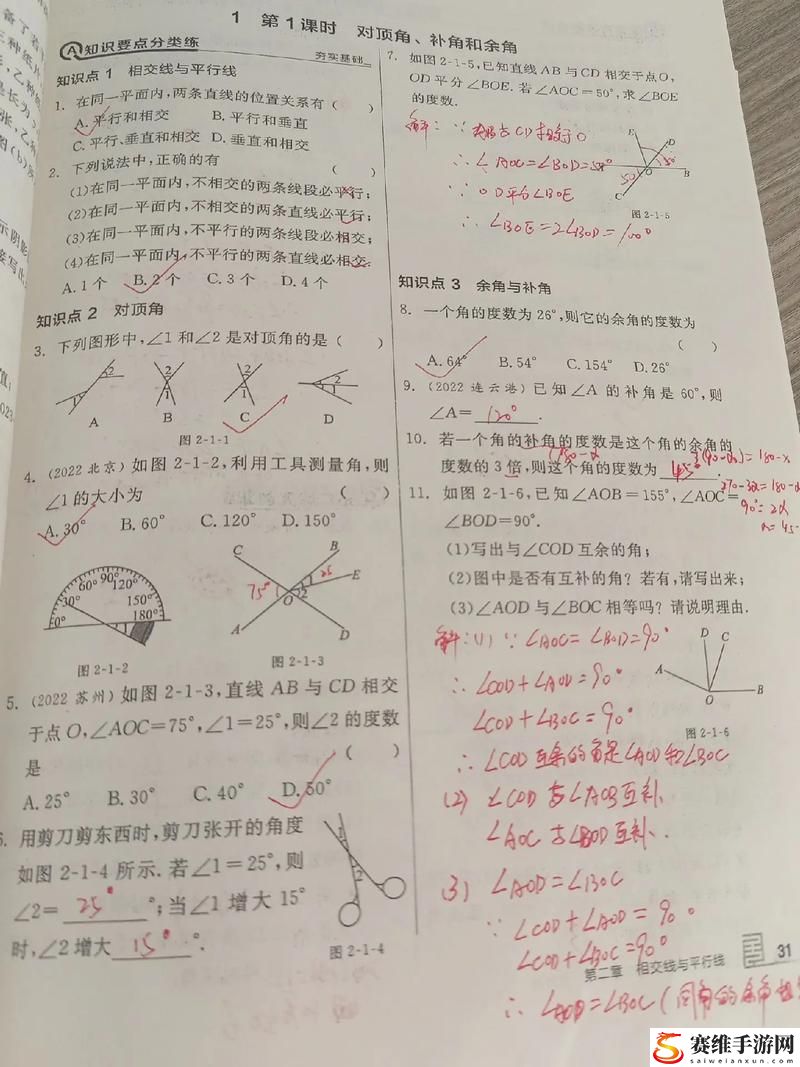 1 第1课时 对顶角、补角和余角
A 知识要点分类练 夯实基础
知识点 1 相交线与平行线
1. 在同一平面内,两条直线的位置关系有( )
A. 平行和相交 B. 平行和垂直
C. 平行、垂直和相交 D. 垂直和相交
2. 下列说法中,正确的有 ( )
(1)在同一平面内,不相交的两条线段必平行;
(2)在同一平面内,不相交的两条直线必平行;
(3)在同一平面内,不平行的两条线段必相交;
(4)在同一平面内,不平行的两条直线必相交.
A. 1 个 B. 2 个 C. 3 个 D. 4 个
知识点 2 对顶角
3. 下列图形中,∠1 和∠2 是对顶角的是( )
2 2 2 2
1 1 1 1
A B C D
图 2-1-1
4. (2022 北京)如图 2-1-2,利用工具测量角,则
∠1 的大小为 ( )
A. 30° B. 60° C. 120° D. 150°
0° 30° 60° 90° 120° 150° 180°
图 2-1-2
C B E A D O 1 2
75° 25
图 2-1-3
5. (2022 苏州)如图 2-1-3,直线 AB 与 CD 相交
于点 O,∠AOC=75°,∠1=25°,则∠2 的度数
是 ( )
A. 25° B. 30° C. 40° D. 50°
6. 用剪刀剪东西时,剪刀张开的角度
如图 2-1-4 所示. 若∠1=25°,则
∠2= 25° °;当∠1 增大 15°
时,∠2 增大 15° °.
1
2
图 2-1-4
7. 如图 2-1-5,已知直线 AB 与 CD 相交于点 O,
OD 平分∠BOE. 若∠AOC=50°,求∠BOE
的度数.
解: ∵ CD相交于O
∴∠AOC=∠BOD=50°
∵ OD平分∠BOE
∴ ∠BOE=2∠BOD=100°
E D B O C
50° 50°
图 2-1-5
知识点 3 余角与补角
8. 一个角的度数为 26°,则它的余角的度数为
( )
A. 64° B. 54° C. 154° D. 26°
9. (2022 连云港)已知∠A 的补角是 60°,则
∠A= 120° .
10. 若一个角的补角的度数是这个角的余角的
180-α 3(90-α)=180-α
度数的 3 倍,则这个角的度数为 45° .
270-3α=180-α
90°=2α
α=45
11. 如图 2-1-6,已知∠AOB=155°,∠AOC=
∠BOD=90°.
(1)写出与∠COD 互余的角;
(2)图中是否有互补的角? 若有,请写出来;
(3)∠AOD 与∠BOC 相等吗? 请说明理由.
解:(1) ∵ ∠AOC=∠BOD=90°
∴ ∠COD+∠AOD=90°
∠COD+∠BOC=90°
∴ ∠COD互余的角是∠AOD和∠BOC
D C A O B
图 2-1-6
(2) ∠COD与∠AOB互补
∠AOC与∠BOD互补.
(3) ∠AOD=∠BOC
∵ ∠COD+∠AOD=90°
∠COD+∠BOC=90°
∴ ∠AOD=∠BOC(同角的余角相
第二章 相交线与平行线 31
赛维手游网
saiweishouyou.com